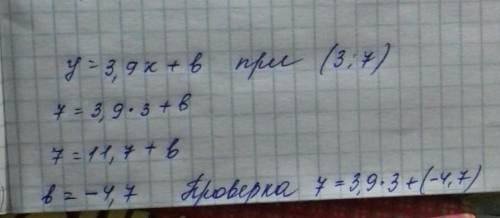 y = 3,9x + в при (3; 7)
7 = 3,9·3 + в
7 = 11,7 + в
в = -4,7 Проверка 7 = 3,9·3 + (-4,7)